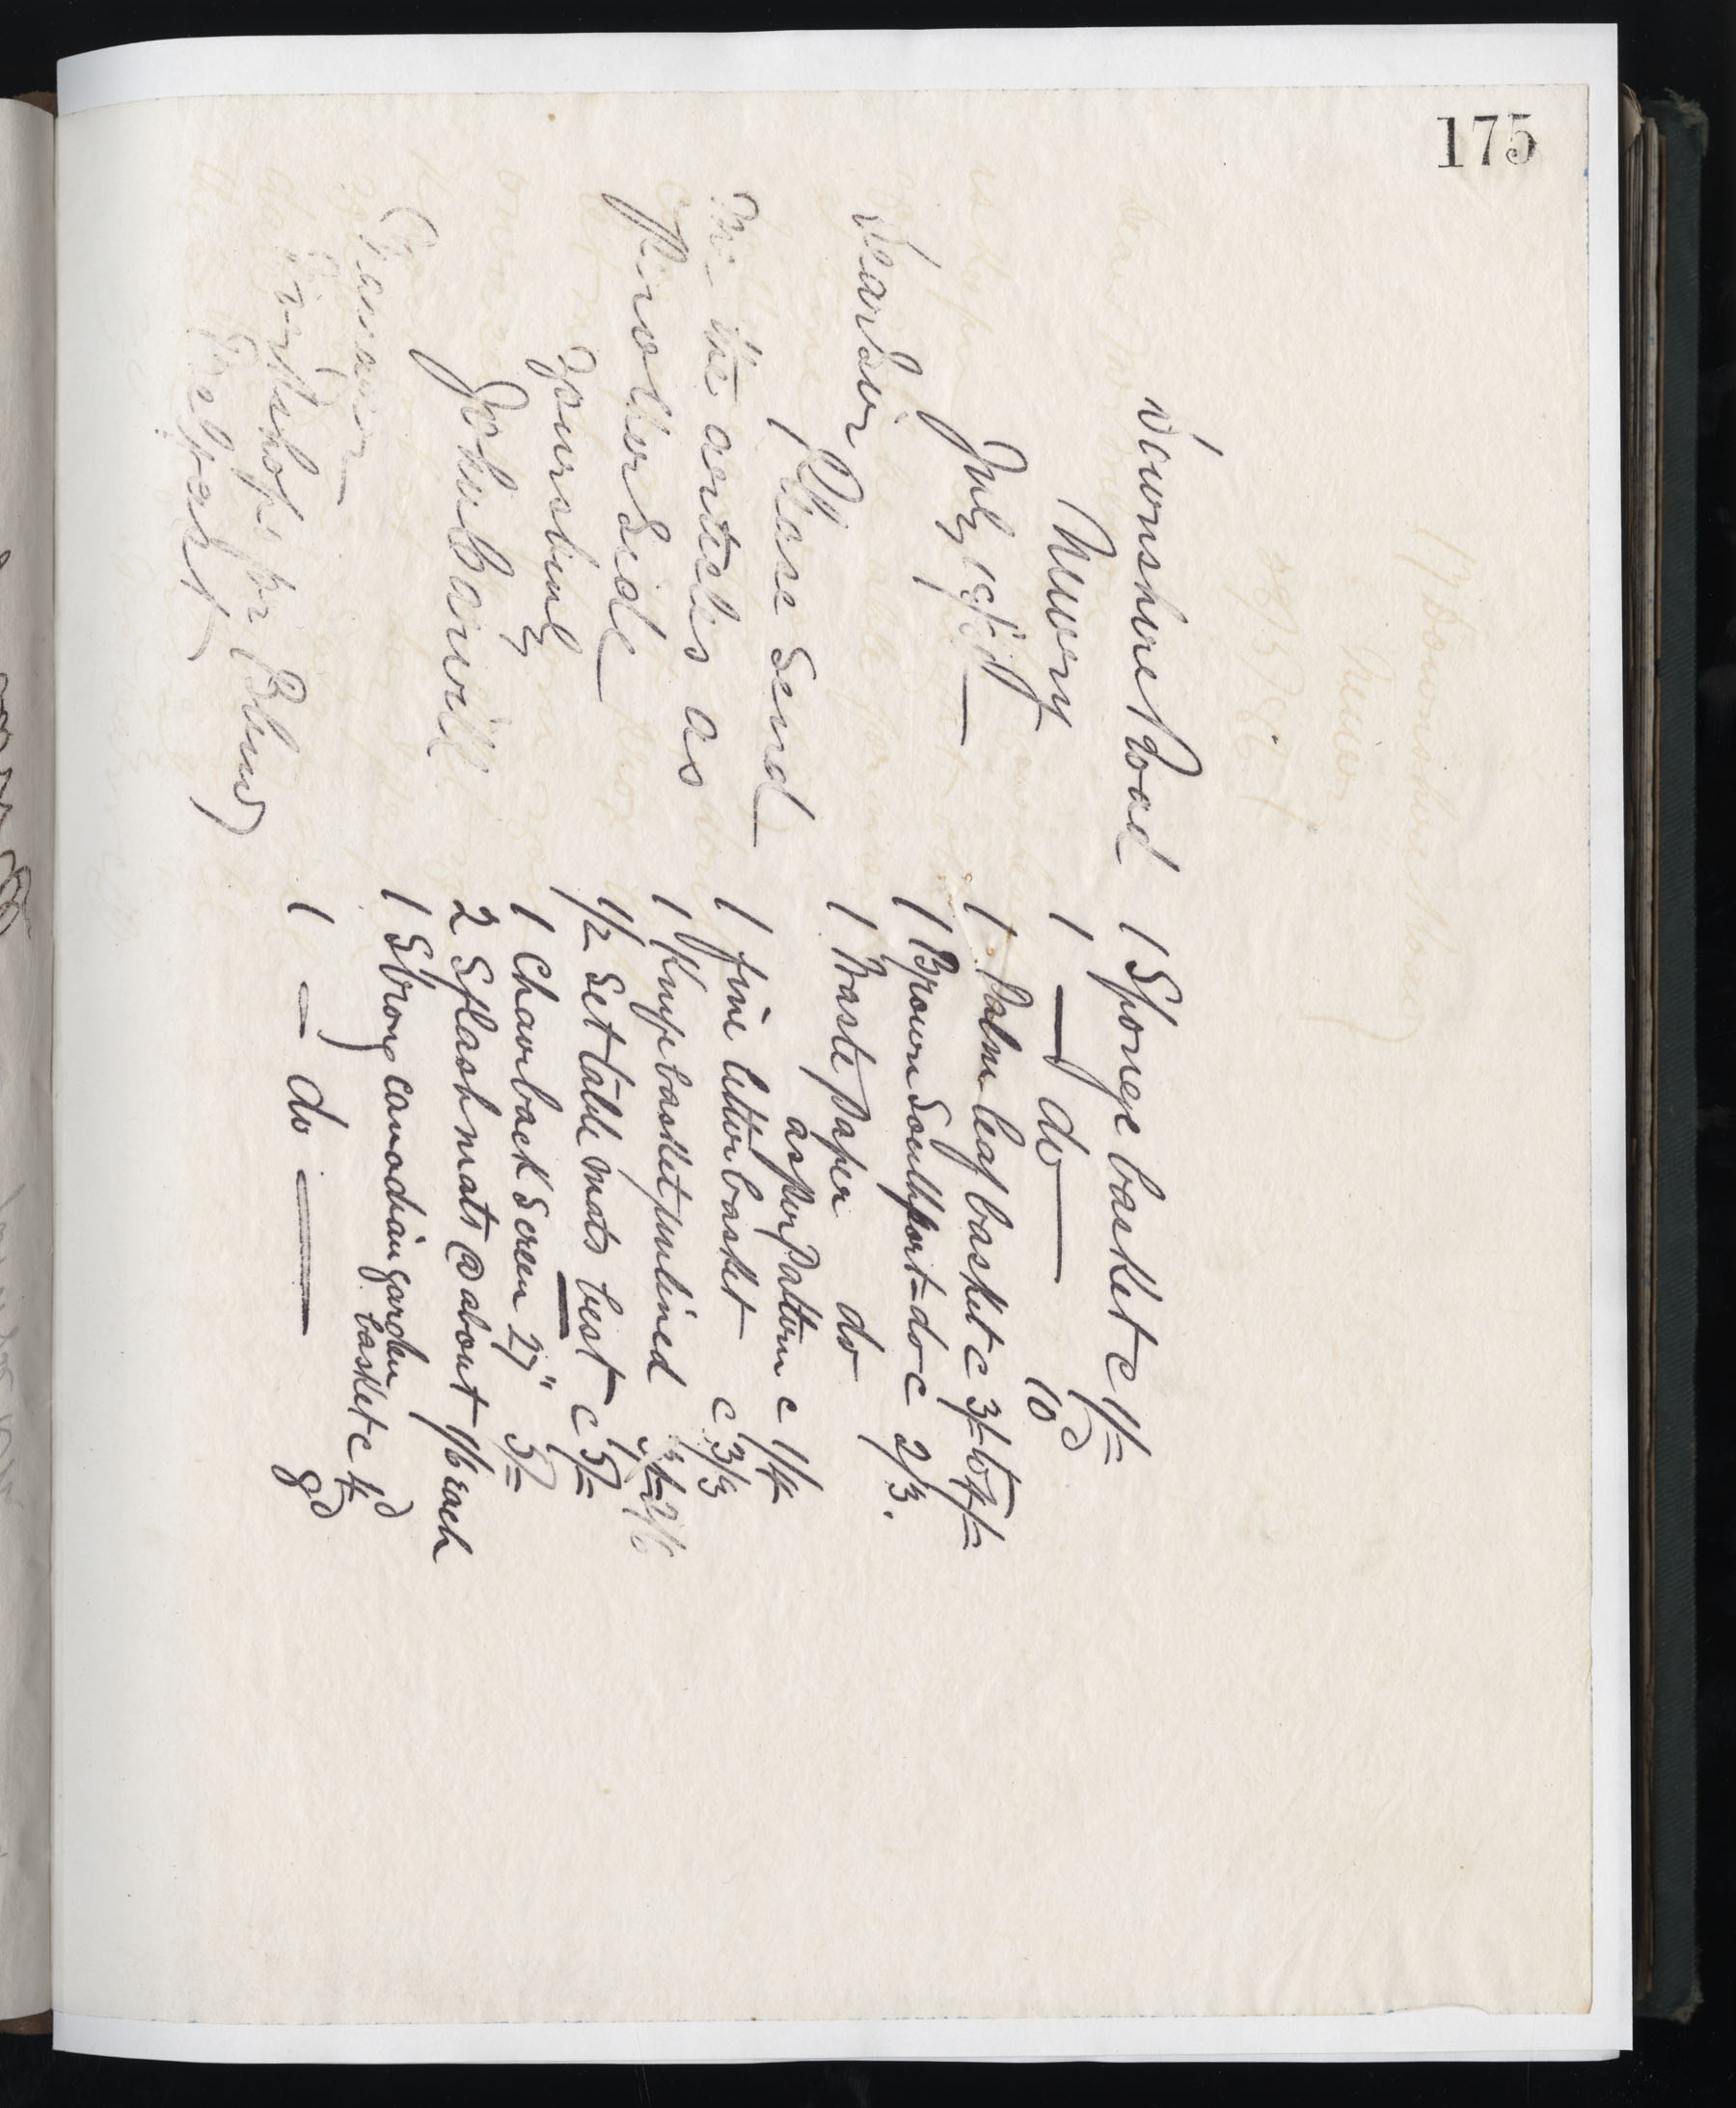 175
Downshire Road
Newry
July 19th
Dear Sir
Please Send
me the articles as
p. r other Side
Yours truly
John Barwill
Manager
Workshops for Blind
Belfast
1 Sponge basket c 1/=
1 — do — 10d
1 Palm leaf basket c 3/= to 4/=
1 Brown Southport = do c 2/3.
1 Waste Paper do
as per Pattern c 1/4
1 fine letter basket c 3/3
1 Knife basket, unlined 2/6
1/2 Set table mats best c 5/=
1 Chair back Screen 27" 5/=
2 Splash mats @ about 1/6 each
1 Strong canadian garden
basket c 4d
1 — do — 8d